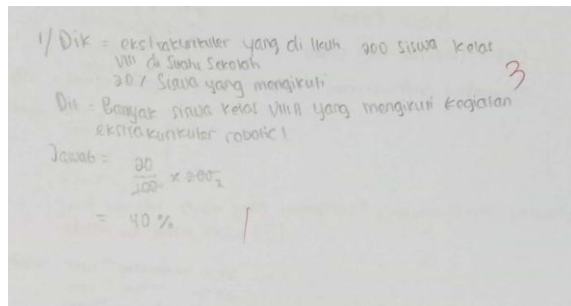 1/ Dik = ekstrakurikuler yang di ikuti 200 siswa kelas
VIII di suatu sekolah
20% siswa yang mengikuti
3
Dit = Banyak siswa kelas VIII A yang mengikuti kegiatan
ekstrakurikuler robotic!
Jawab =
20
100 × 200 2
= 40 %
1